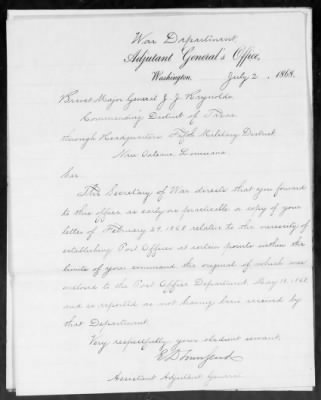 War Department,
Adjutant General's Office,
Washington, July 2, 1868.
Brevet Major General J. J. Reynolds
Commanding District of Texas
through Headquarters Fifth Military District
New Orleans, Louisiana
Sir:
The Secretary of War directs that you forward
to this office as early as practicable a copy of your
letter of February 29, 1868 relative to the necessity of
establishing Post Offices at certain points within the
limits of your command the original of which was
endorsed to the Post Office Department, May 18, 1868,
and is reported as not having been received by
that Department.
Very respectfully your obedient servant,
E. D. Townsend
Assistant Adjutant General